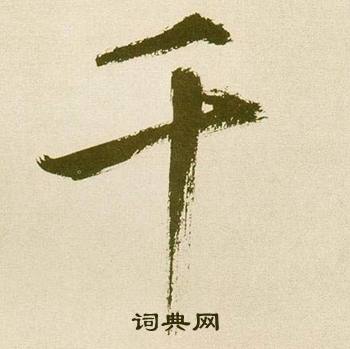 千
词典网